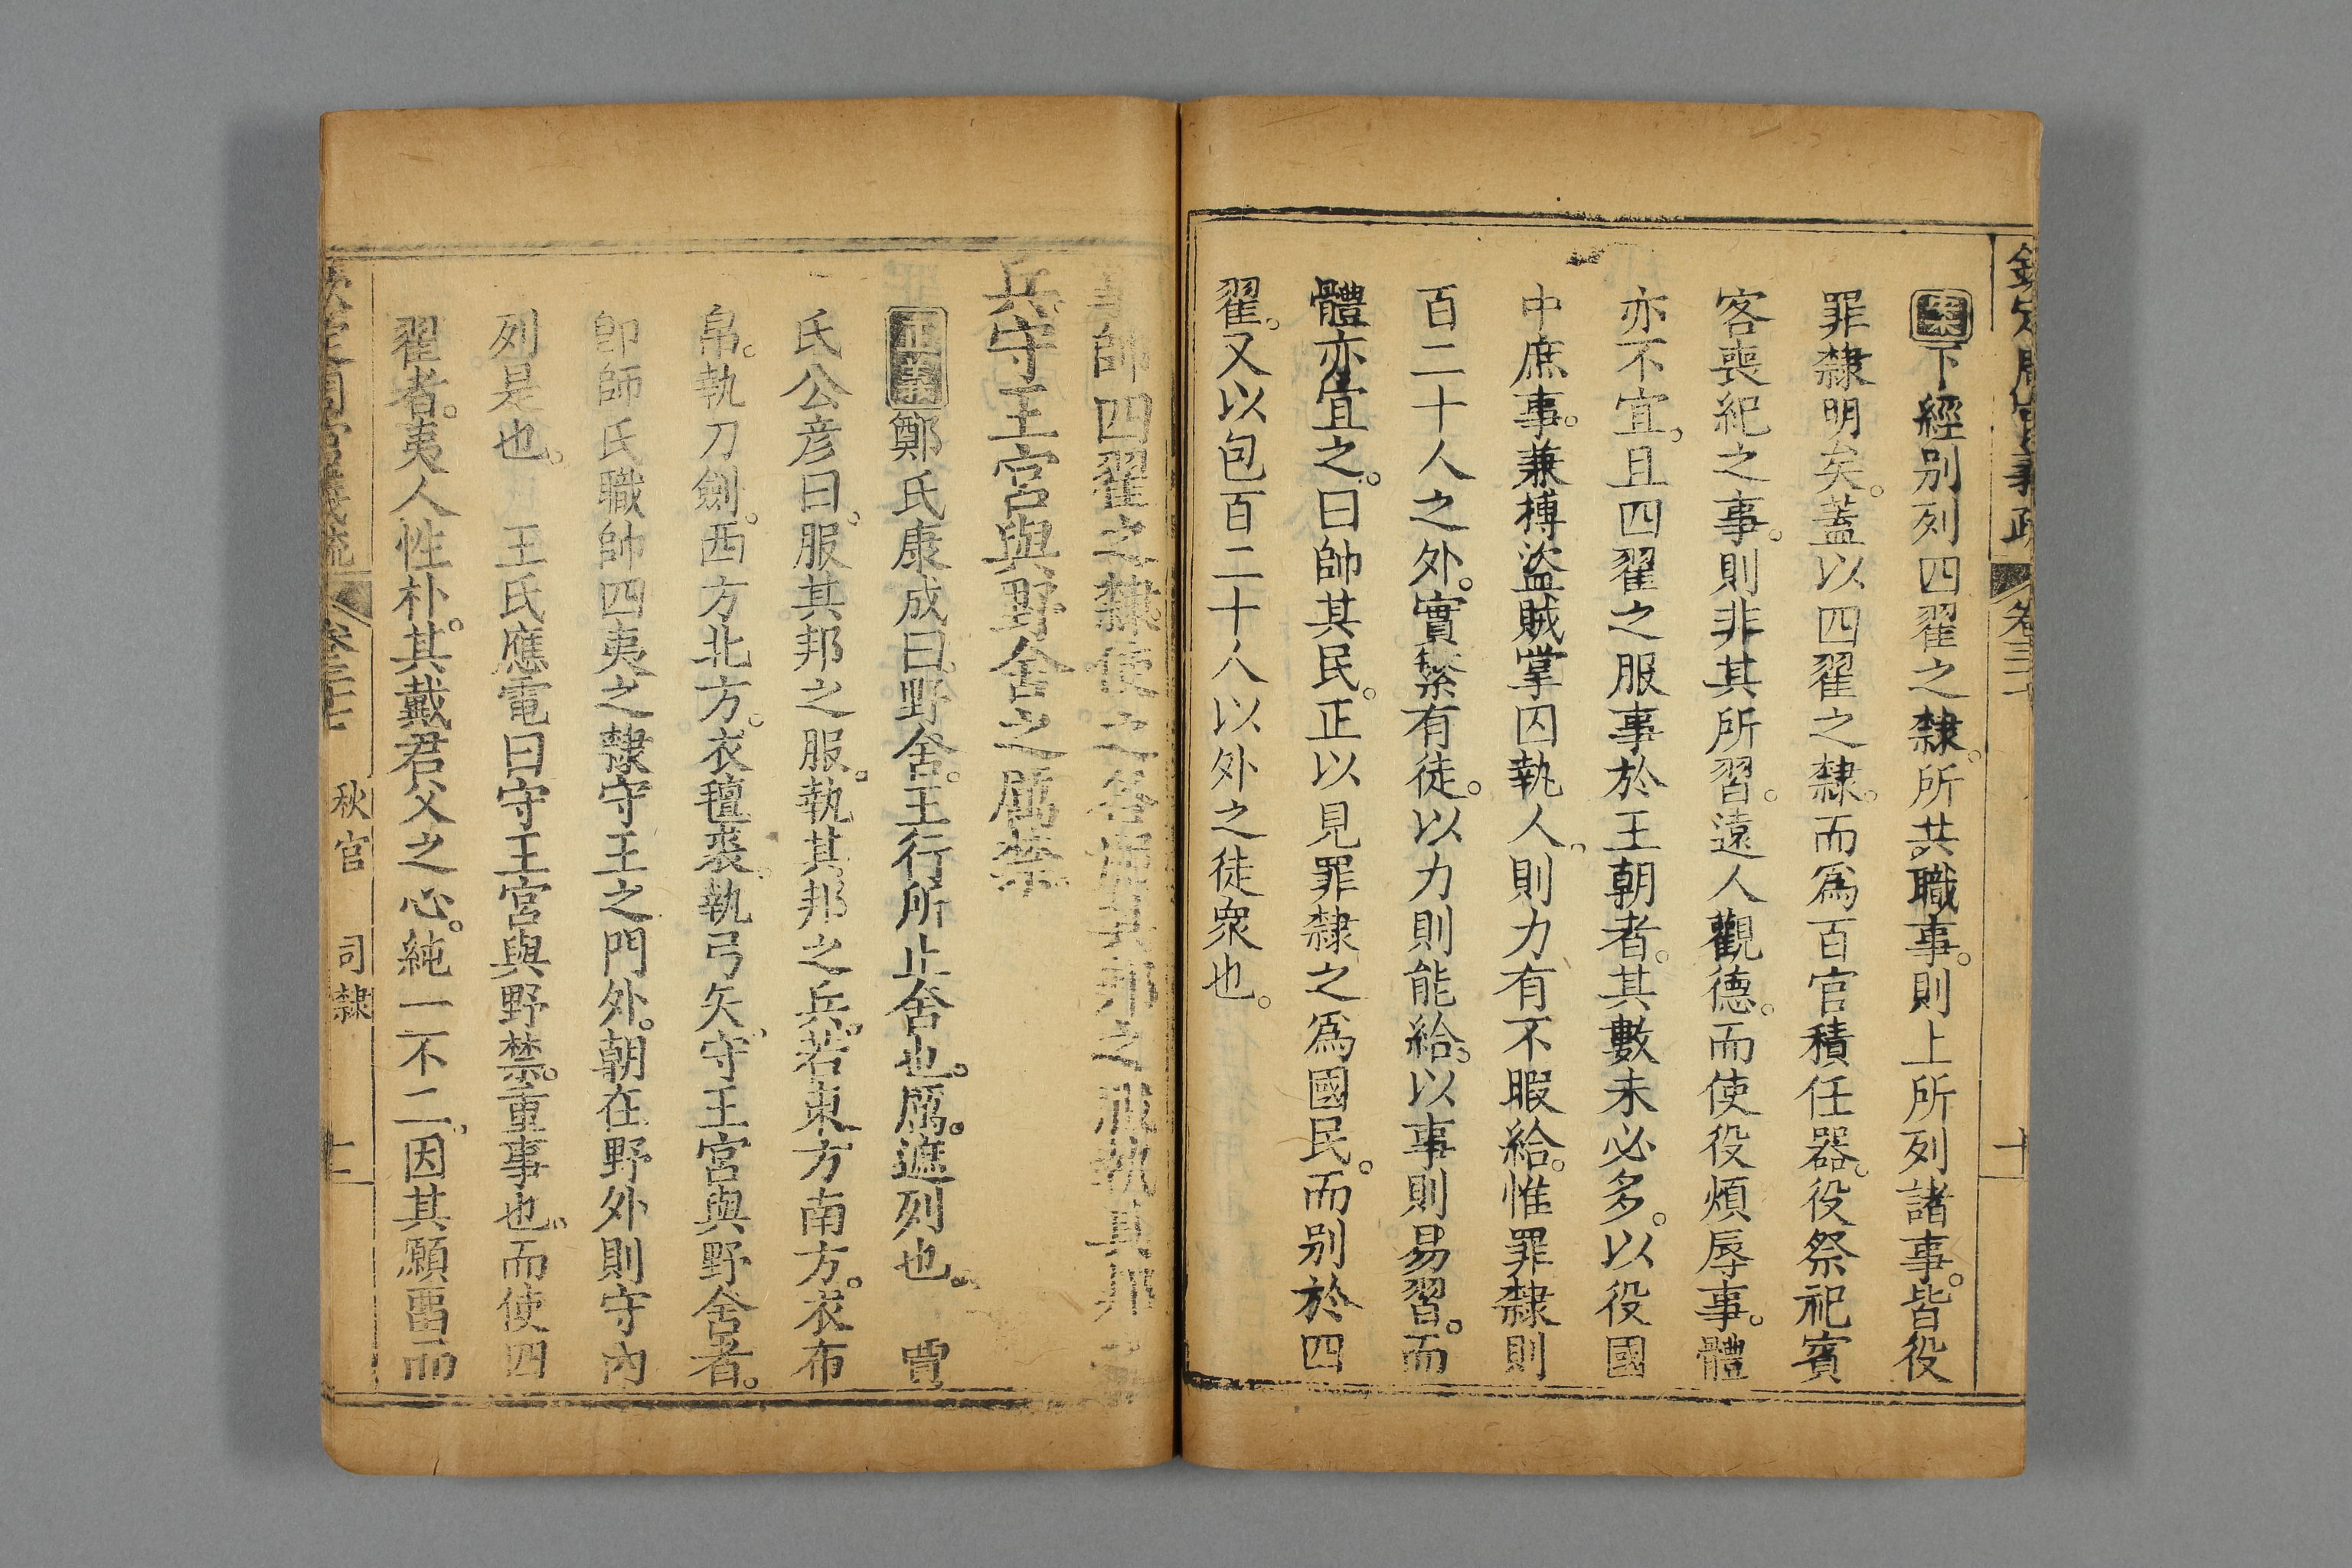 案下經别列四翟之隸。所共職事。則上所列諸事。皆役
罪隸明矣。蓋以四翟之隸。而爲百官積任器。役祭祀賓
客喪紀之事。則非其所習。遠人觀德。而使役煩辱事。體
亦不宜。且四翟之服事於王朝者。其數未必多。以役國
中庶事。兼搏盜賊掌囚執人。則力有不暇給。惟罪隸則
百二十人之外。實繁有徒。以力則能給。以事則易習。而
體亦宜之。曰帥其民。正以見罪隸之爲國民。而别於四
翟。又以包百二十人以外之徒衆也。
帥四翟之隸。使之各服其邦之服執其邦之
兵。守王宮與野舍之厲禁
正義鄭氏康成曰。野舍。王行所止舍也。厲。遮列也。 賈
氏公彦曰。服其邦之服。執其邦之兵。若東方南方。衣布
帛。執刀劍。西方北方。衣氊裘。執弓矢。守王宮與野舍者。
卽師氏職帥四夷之隸守王之門外。朝在野外則守內
列是也。 王氏應電曰守王宮與野禁。重事也。而使四
翟者。夷人性朴。其戴君父之心。純一不二。因其願畱而
欽定周官義疏 卷三十七 秋官 司隸 十一